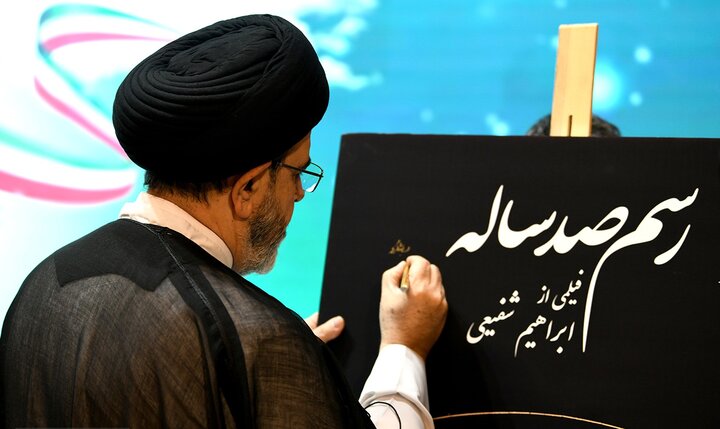 رسم صد ساله
فیلمی از
ابراهیم شفیعی